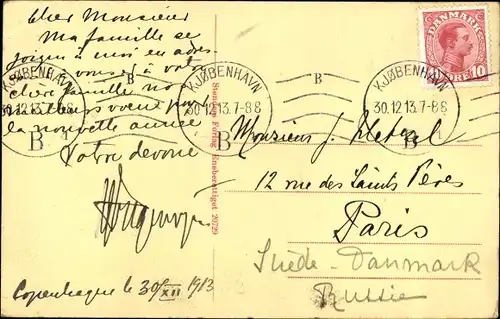 Cher Monsieur
Ma famille se
joigne à moi en adres-
vous à votre
chère famille nos
meilleurs voeux pour
la nouvelle année
Votre dévoué
Copenhague le 30/XII 1913
KJØBENHAVN
30.12.13.7-8 B
B
KJØBENHAVN
30.12.13.7-8 B
B
B
KJØBENHAVN
30.12.13.7-8 B
B
DANMARK
10 ØRE 10
Stenders Forlag Eneberettiget 20729
Monsieur J.
12 rue des Saints Pères
Paris
Suède - Danmark
Russie